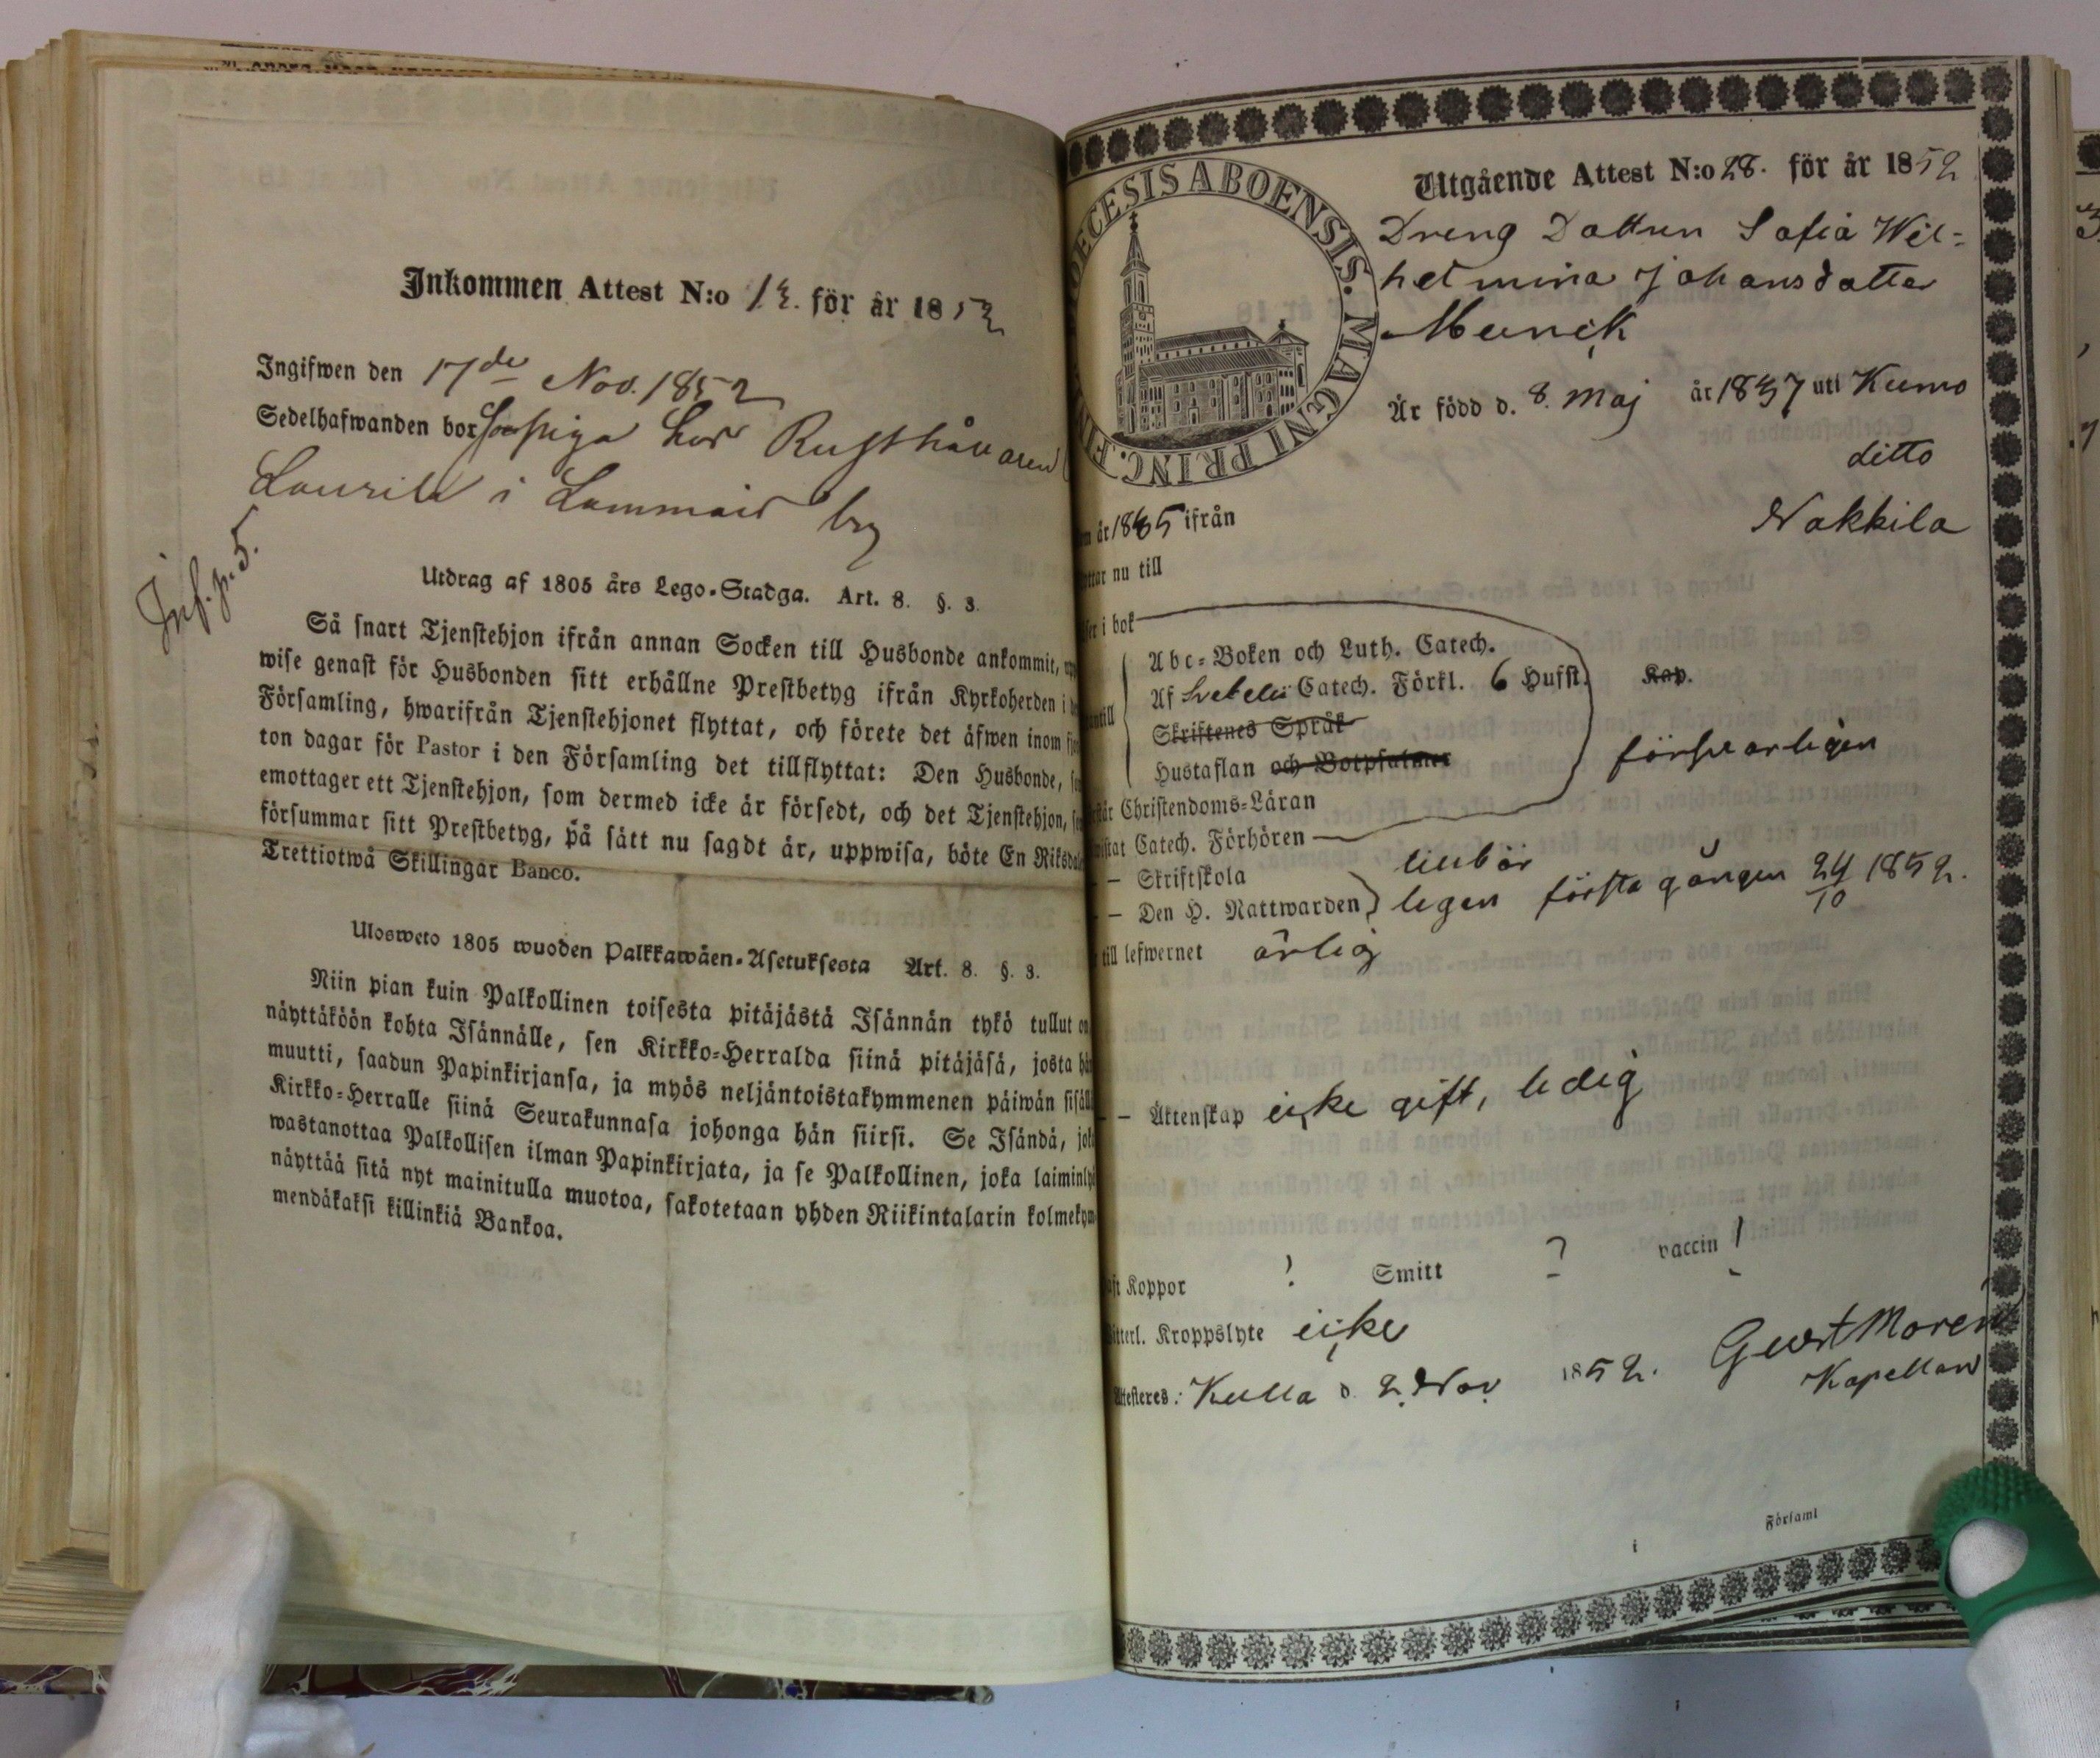 Inkommen Attest N:o för år 1852
Ingifwen den 17de Nov. 1852
Sedelhafwanden bor piga hos Rusthållaren
Laurila i Lammais by
Inf. p. 5.
Utdrag af 1805 års Lego-Stadga. Art. 8. §. 3.
Så snart Tjenstehjon ifrån annan Socken till Husbonde ankommit, upp
wise genast för Husbonden sitt erhållne Prestbetyg ifrån Kyrkoherden i
Församling, hwarifrån Tjenstehjonet flyttat, och förete det äfwen inom
ton dagar för Pastor i den Församling det tillflyttat: Den Husbonde,
emottager ett Tjenstehjon, som dermed icke är försedt, och det Tjenstehjon,
försummar sitt Prestbetyg, på sätt nu sagdt är, uppwisa, böte En Riksda
Trettiotwå Skillingar Banco.
Ulosweto 1805 wuoden Palkkawäen-Asetuksesta Art. 8. §. 3.
Niin pian kuin Palkollinen toisesta pitäjästä Isännän tykö tullut on
näyttäköön kohta Isännälle, sen Kirkko-Herralda siinä pitäjäsä, josta hän
muutti, saadun Papinkirjansa, ja myös neljäntoistakymmenen päiwän sisäll
Kirkko-Herralle siinä Seurakunnasa johonga hän siirsi. Se Isändä, jok
wastanottaa Palkollisen ilman Papinkirjata, ja se Palkollinen, joka laiminly
näyttää sitä nyt mainitulla muotoa, sakotetaan yhden Riikintalarin kolmekym
mendäkaksi killinkiä Bankoa.
DIOECESIS ABOENSIS. MAGNI PRINC. FIN
Utgående Attest N:o 28. för år 1852
Dreng Dottren Sofia Wil=
helmina Johansdotter
Munck
Är född d. 8. Maj år 1837 uti Kumo
ditto
m år 1835 ifrån
Nakkila
ttar nu till
ser i bok
Abc-Boken och Luth. Catech.
Af Svebelii Catech. Förkl. 6 Hufst. Kap.
antill
Skriftenes Språk
Hustaflan och Botpsalmer
försvarligen
står Christendoms-Läran
wistat Catech. Förhören
- Skriftskola tillbör
- Den H. Nattwarden ligen första gången 24/10 1852.
till lefwernet ärlig
- Äktenskap icke gift, ledig
aft Koppor ? Smitt ? vaccin !
itterl. Kroppslyte icke
Attesteres: Kulla d. 2. Nov. 1852. Gust Morén
Kapellan
i Församl